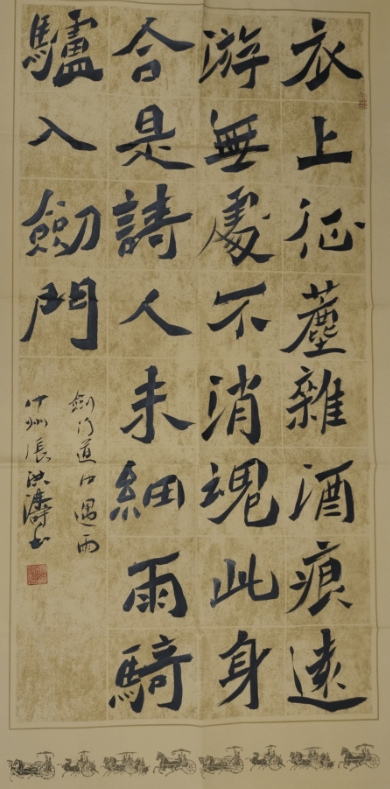 衣上征塵雜酒痕遠
游無處不消魂此身
合是詩人未細雨騎
驢入劍門
劍门道中遇雨
州張洪濤书